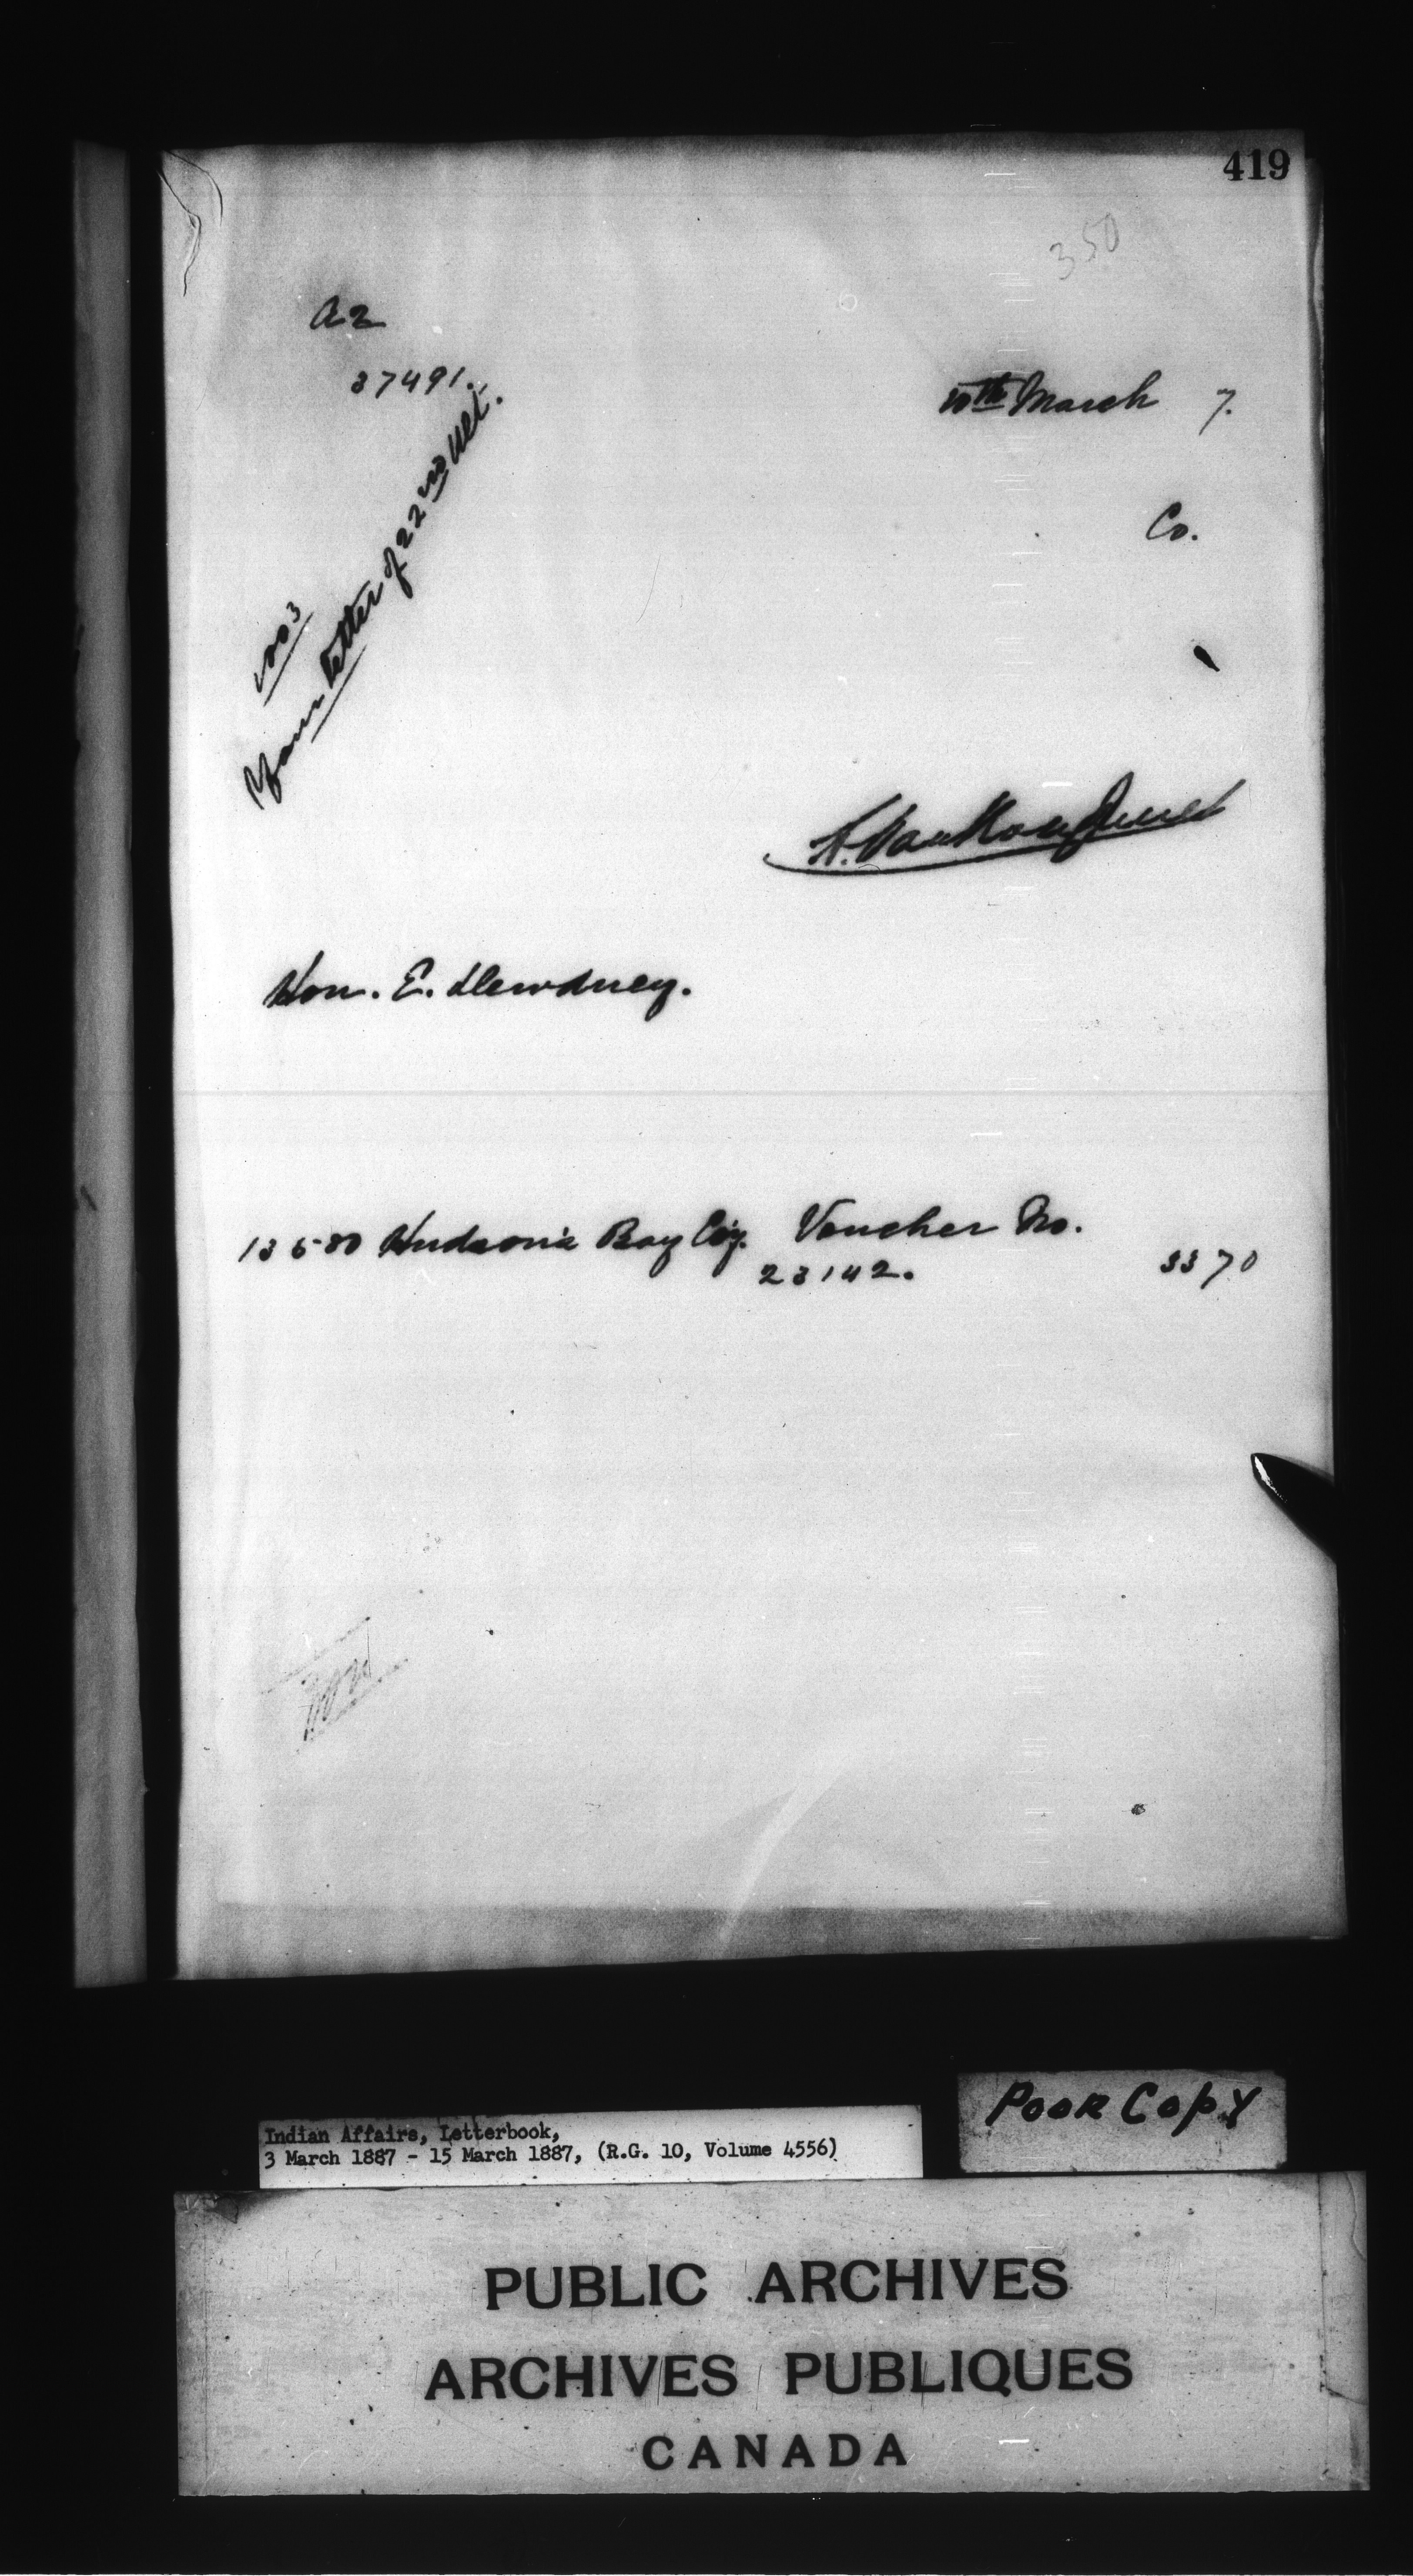 419
350
A2
37491.
10th March 7.
Co.
1003
Your letter of 22nd Ult.
L. VanKoughnet
Hon. E. Dewdney.
13580 Hudson's Bay Coy. Voucher No.
23142. 3370
Poor Copy
Indian Affairs, Letterbook,
3 March 1887 - 15 March 1887, (R.G. 10, Volume 4556)
PUBLIC ARCHIVES
ARCHIVES PUBLIQUES
CANADA